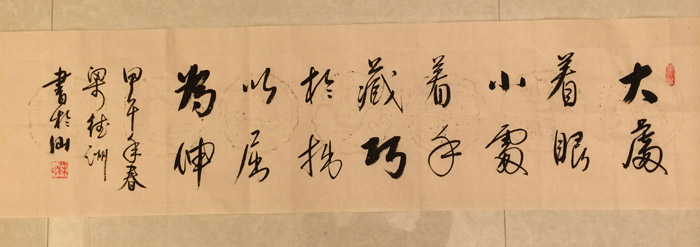 大處
着眼
小處
着手
藏巧
於拙
以屈
為伸
甲午年春
梁德洲
書於汕